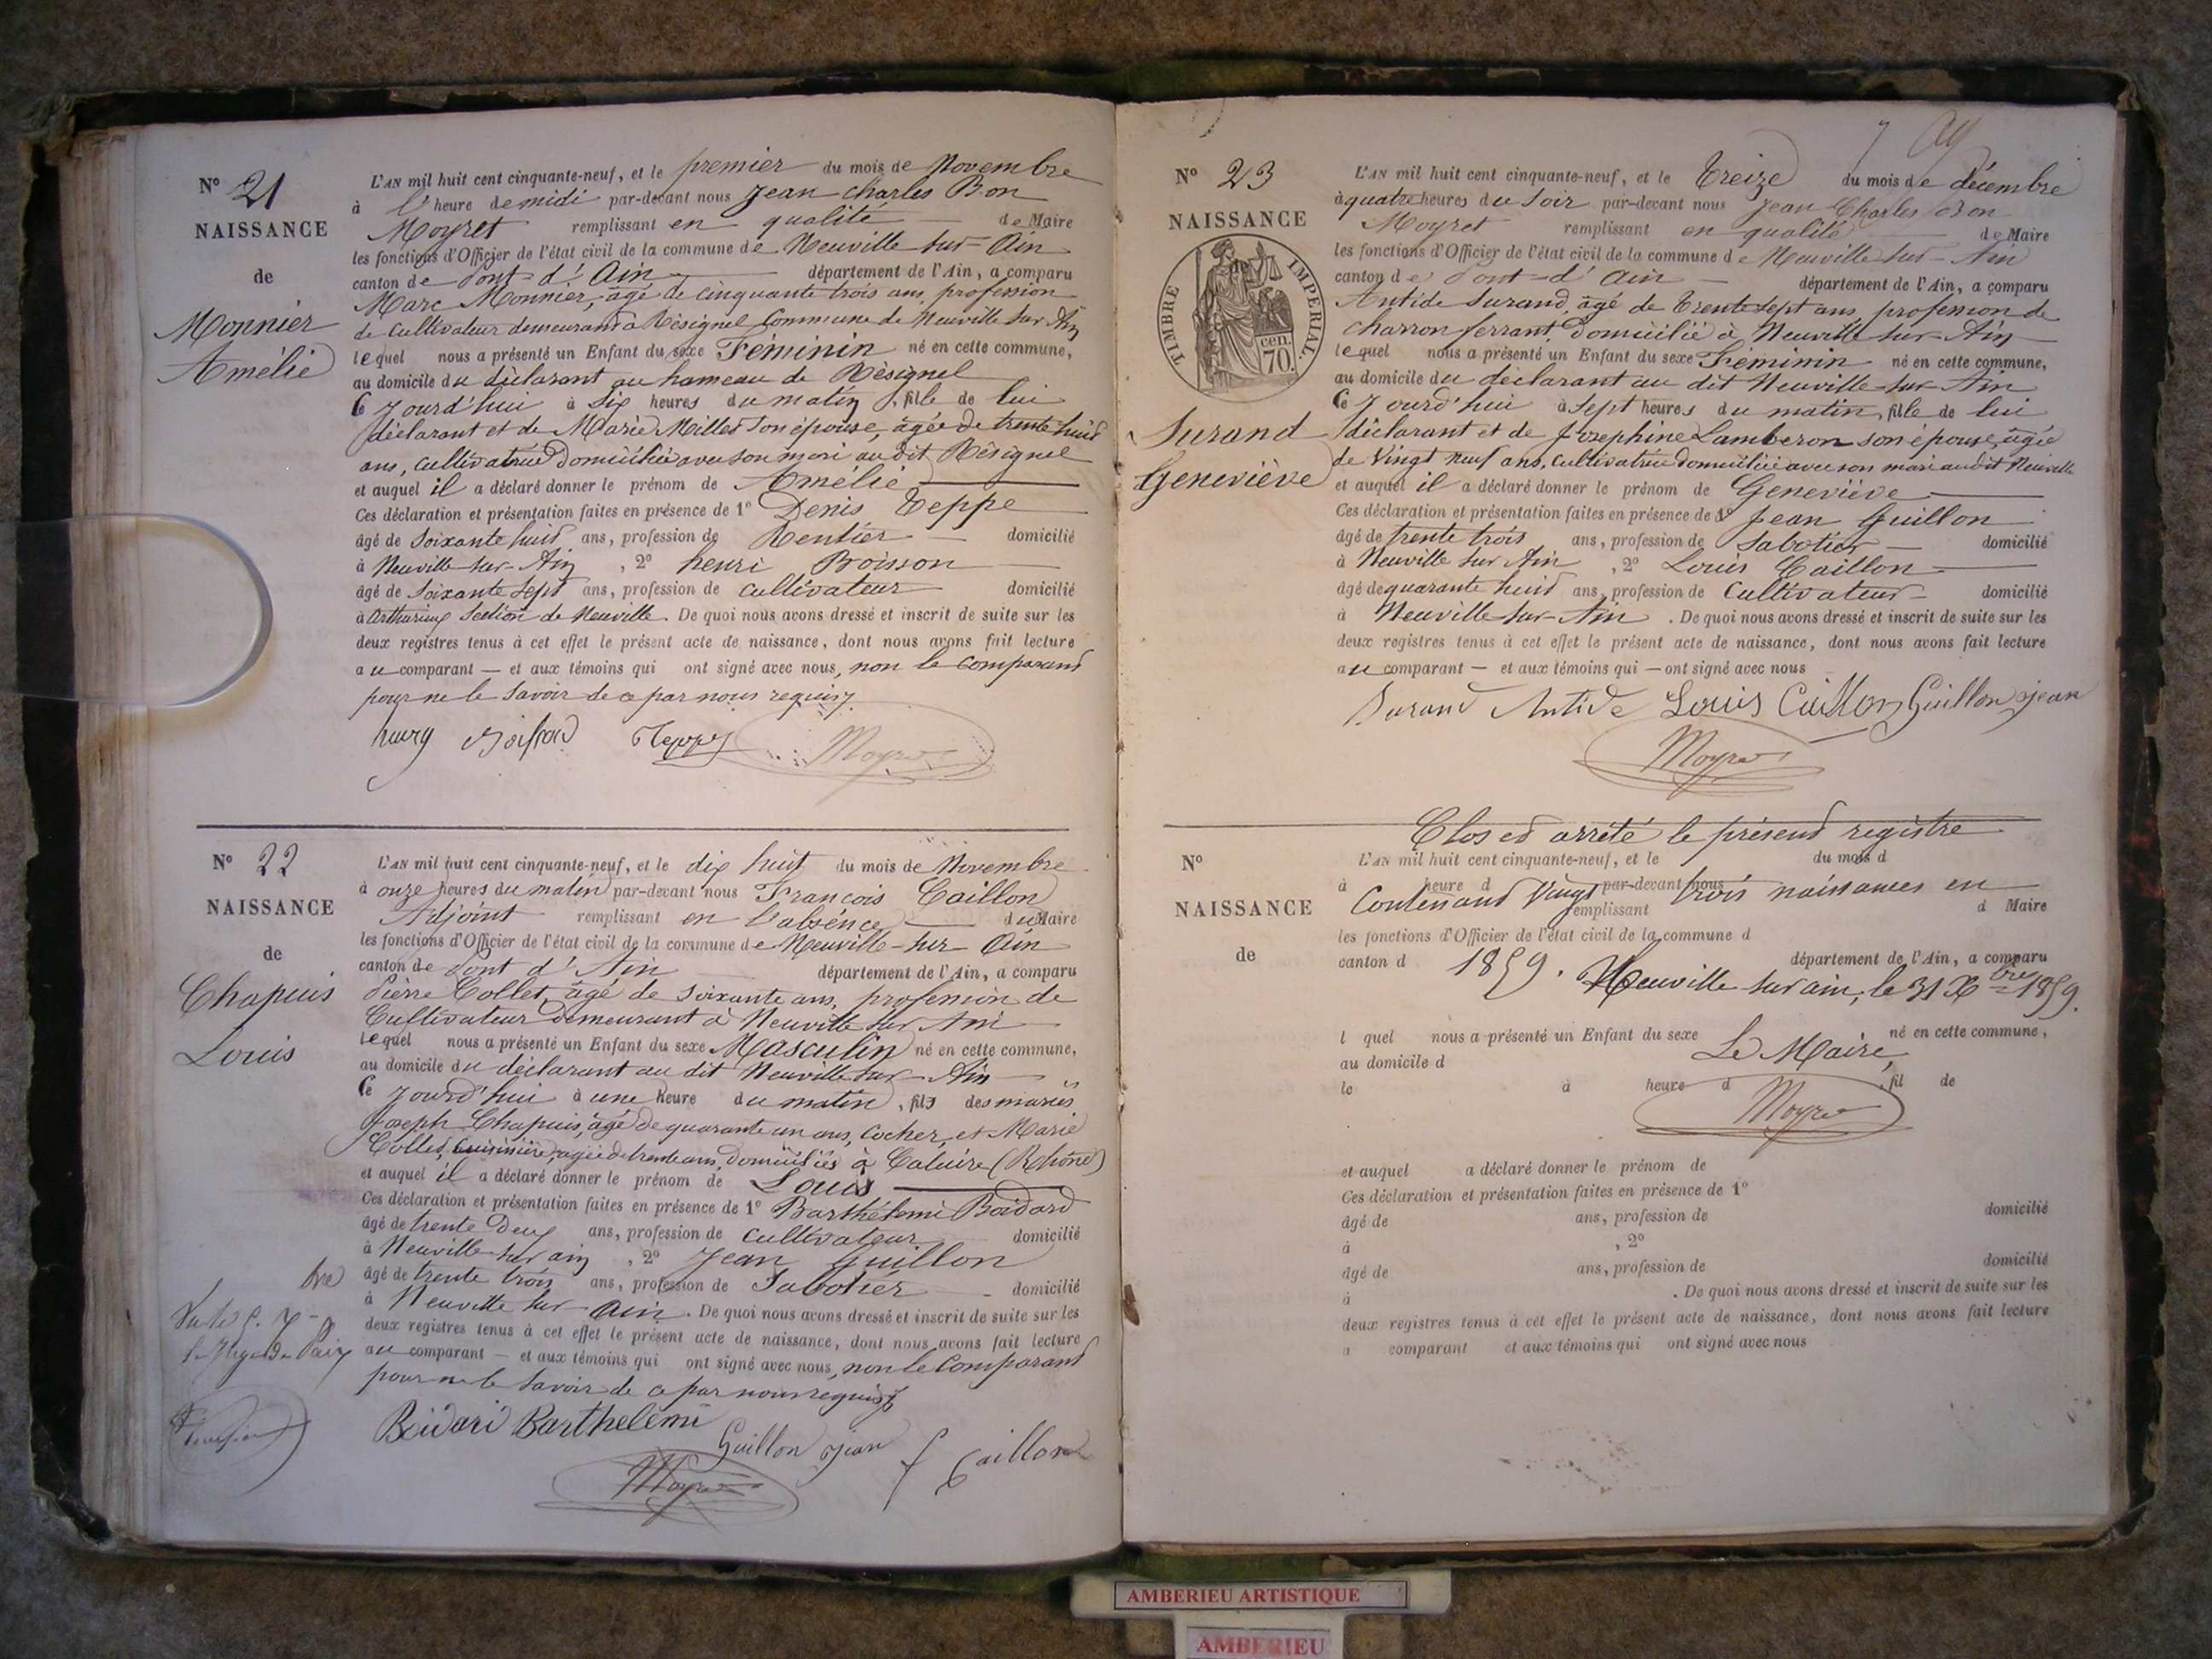 N° 21
NAISSANCE
de
Monnier
Amélie
L'AN mil huit cent cinquante-neuf, et le premier du mois de Novembre
à l'heure de midi par-devant nous Jean Charles Bon
Moyret remplissant en qualité de Maire
les fonctions d'Officier de l'état civil de la commune de Neuville sur-Ain
canton de Pont-d'Ain département de l'Ain, a comparu
Marc Monnier, âgé de cinquante trois ans, profession
de Cultivateur demeurant à Résignel Commune de Neuville sur Ain
lequel nous a présenté un Enfant du sexe Féminin né en cette commune,
au domicile du déclarant au hameau de Résignel
Ce Jourd'hui à Six heures du matin, fille de lui
déclarant et de Marie Millet Son épouse, âgée de trente huit
ans, cultivatrice Domiciliée avec son mari au dit Résignel
et auquel il a déclaré donner le prénom de Amélie
Ces déclaration et présentation faites en présence de 1° Denis Teppe
âgé de soixante huit ans, profession de Rentier domicilié
à Neuville sur-Ain, 2° henri Boisson
âgé de Soixante Sept ans, profession de cultivateur domicilié
à Section de Neuville. De quoi nous avons dressé et inscrit de suite sur les
deux registres tenus à cet effet le présent acte de naissance, dont nous avons fait lecture
au comparant — et aux témoins qui ont signé avec nous, non le comparant
pour ne le Savoir de ce par nous requis.
Moyret
N° 22
NAISSANCE
de
Chapuis
Louis
L'AN mil huit cent cinquante-neuf, et le dix huit du mois de Novembre
à onze heures du matin par-devant nous François Caillon
Adjoint remplissant en l'absence du Maire
les fonctions d'Officier de l'état civil de la commune de Neuville-sur-Ain
canton de Pont d'Ain département de l'Ain, a comparu
Pierre Collet, âgé de soixante ans, profession de
Cultivateur Demeurant à Neuville sur Ain
lequel nous a présenté un Enfant du sexe Masculin né en cette commune,
au domicile du déclarant au dit Neuville sur-Ain
Ce Jourd'hui à une heure du matin, fils des mariés
Joseph Chapuis, âgé de quarante un ans, Cocher, et Marie
Collet, Cuisinière, âgée de trente ans, Domiciliés à Caluire (Rhône)
et auquel il a déclaré donner le prénom de Louis
Ces déclaration et présentation faites en présence de 1° Barthélemi Boidard
âgé de trente Deux ans, profession de Cultivateur domicilié
à Neuville sur ain, 2° Jean Guillon
âgé de trente trois ans, profession de Sabotier domicilié
à Neuville sur-Ain. De quoi nous avons dressé et inscrit de suite sur les
deux registres tenus à cet effet le présent acte de naissance, dont nous avons fait lecture
au comparant — et aux témoins qui ont signé avec nous, non le Comparant
pour ne le Savoir de ce par nous requis
Barthelemi
Guillon Jean
f Caillon
N° 23
NAISSANCE
TIMBRE IMPERIAL.
70. cen.
Surand
Geneviève
L'AN mil huit cent cinquante-neuf, et le Treize du mois de décembre
à quatre heures du Soir par-devant nous Jean Charles Bon
Moyret remplissant en qualité de Maire
les fonctions d'Officier de l'état civil de la commune de Neuville sur-Ain
canton de Pont-d'Ain département de l'Ain, a comparu
Antide Surand, âgé de Trente sept ans, profession de
charron ferrant, Domicilié à Neuville sur-Ain
lequel nous a présenté un Enfant du sexe Féminin né en cette commune,
au domicile du déclarant au dit Neuville-sur-Ain
Ce Jourd'hui à Sept heures du matin, fille de lui
déclarant et de Josephine Lamberon son épouse, âgée
de Vingt neuf ans, Cultivatrice domiciliée avec son mari audit Neuville
et auquel il a déclaré donner le prénom de Geneviève
Ces déclaration et présentation faites en présence de 1° Jean Guillon
âgé de trente trois ans, profession de Sabotier domicilié
à Neuville sur Ain, 2° Louis Caillon
âgé de quarante huit ans, profession de Cultivateur domicilié
à Neuville-sur-Ain. De quoi nous avons dressé et inscrit de suite sur les
deux registres tenus à cet effet le présent acte de naissance, dont nous avons fait lecture
au comparant — et aux témoins qui — ont signé avec nous
Surand Antide Louis Caillon Guillon Jean
Moyret
Clos et arrêté le présent registre
N°
NAISSANCE
de
L'AN mil huit cent cinquante-neuf, et le du mois d
à heure d par-devant nous
Contenant Vingt trois naissances en
remplissant d Maire
les fonctions d'Officier de l'état civil de la commune d
canton d département de l'Ain, a comparu
1859. Neuville sur ain, le 31 Xbre 1859.
l quel nous a présenté un Enfant du sexe né en cette commune,
au domicile d
Le Maire,
le à heure d , fil de
Moyret
et auquel a déclaré donner le prénom de
Ces déclaration et présentation faites en présence de 1°
âgé de ans, profession de domicilié
à , 2°
âgé de ans, profession de domicilié
à . De quoi nous avons dressé et inscrit de suite sur les
deux registres tenus à cet effet le présent acte de naissance, dont nous avons fait lecture
a comparant et aux témoins qui ont signé avec nous
AMBERIEU ARTISTIQUE
AMBERIEU